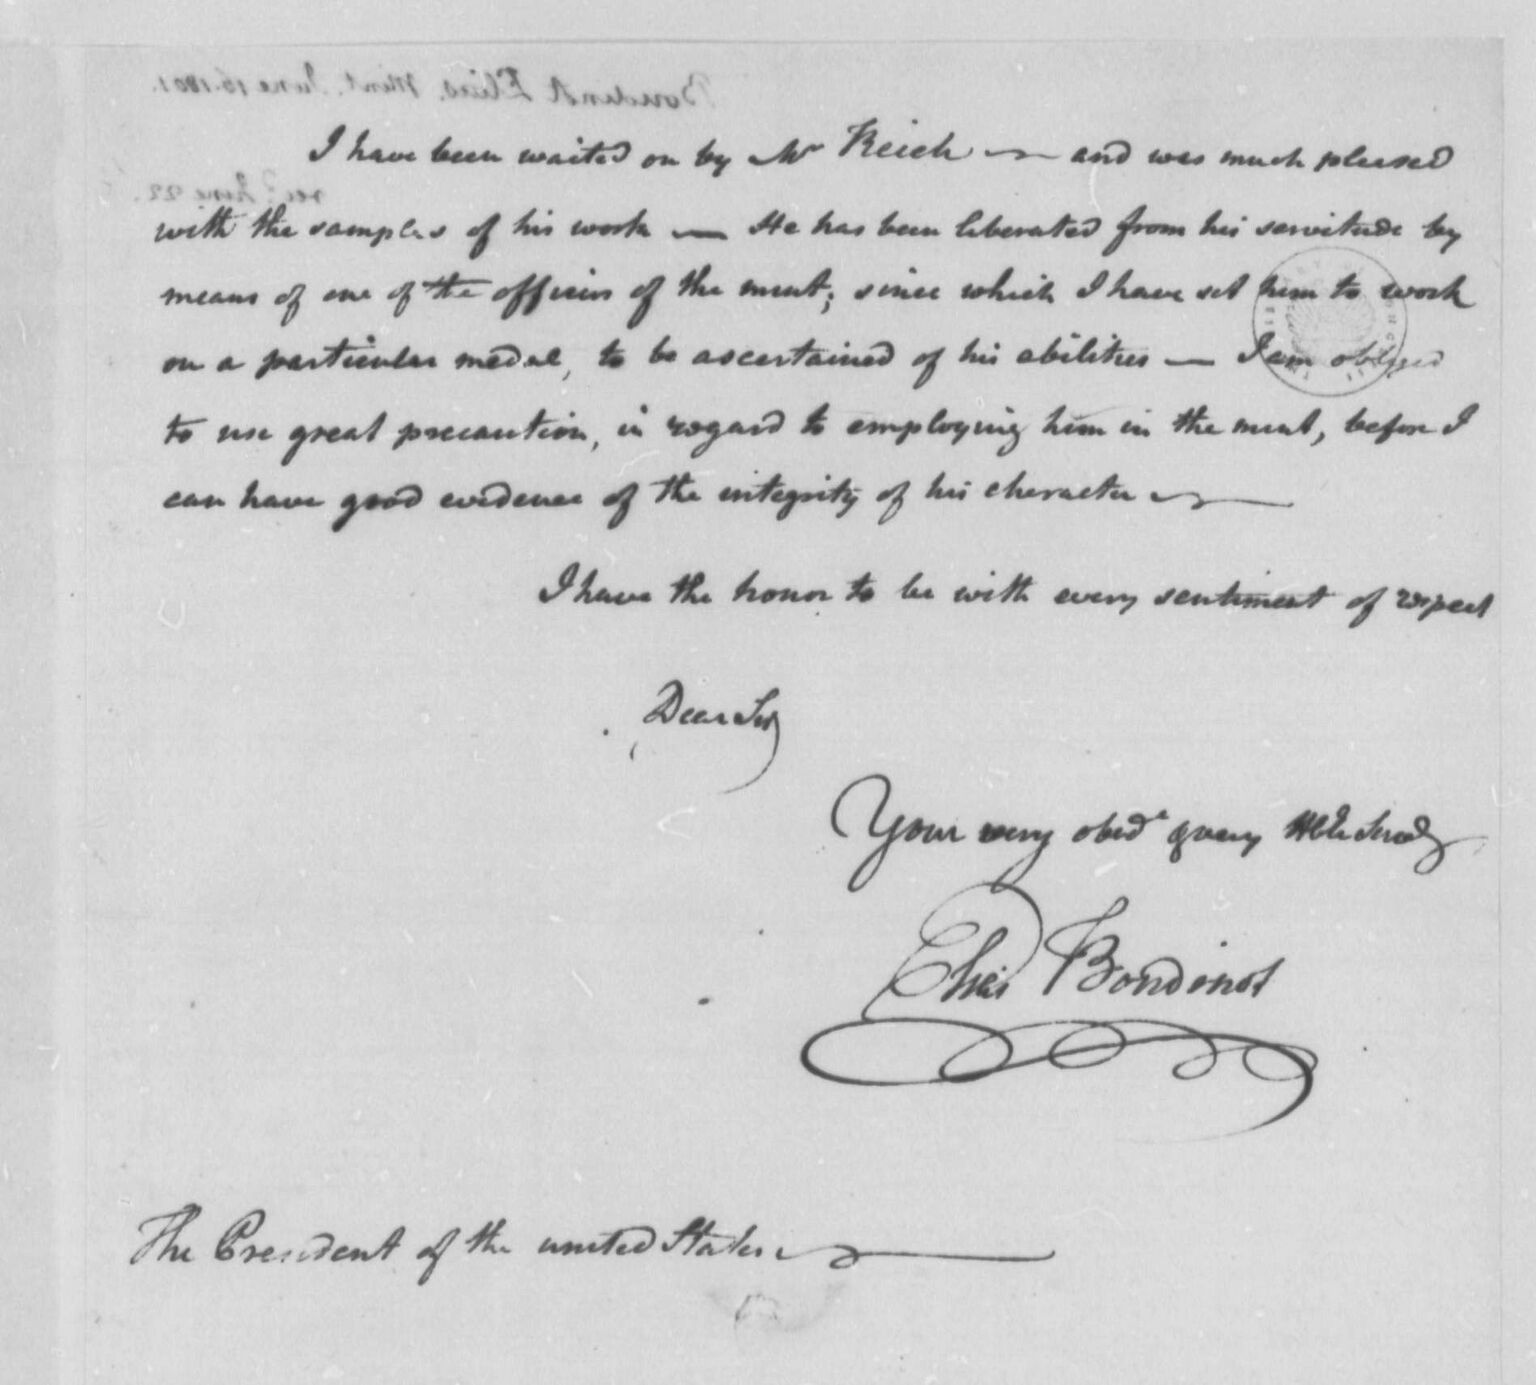 Boudinot Elias. Mint. June 16. 1801.
I have been waited on by Mr Reich — and was much pleased
recd June 22.
with the samples of his work — He has been liberated from his servitude by
means of one of the officers of the mint; since which I have set him to work
on a particular medal, to be ascertained of his abilities — I am obliged
to use great precaution, in regard to employing him in the mint, before I
can have good evidence of the integrity of his character —
I have the honor to be with every sentiment of respect
Dear Sir
Your very obedt & very Hble Servt
Elias Boudinot
The President of the united States —